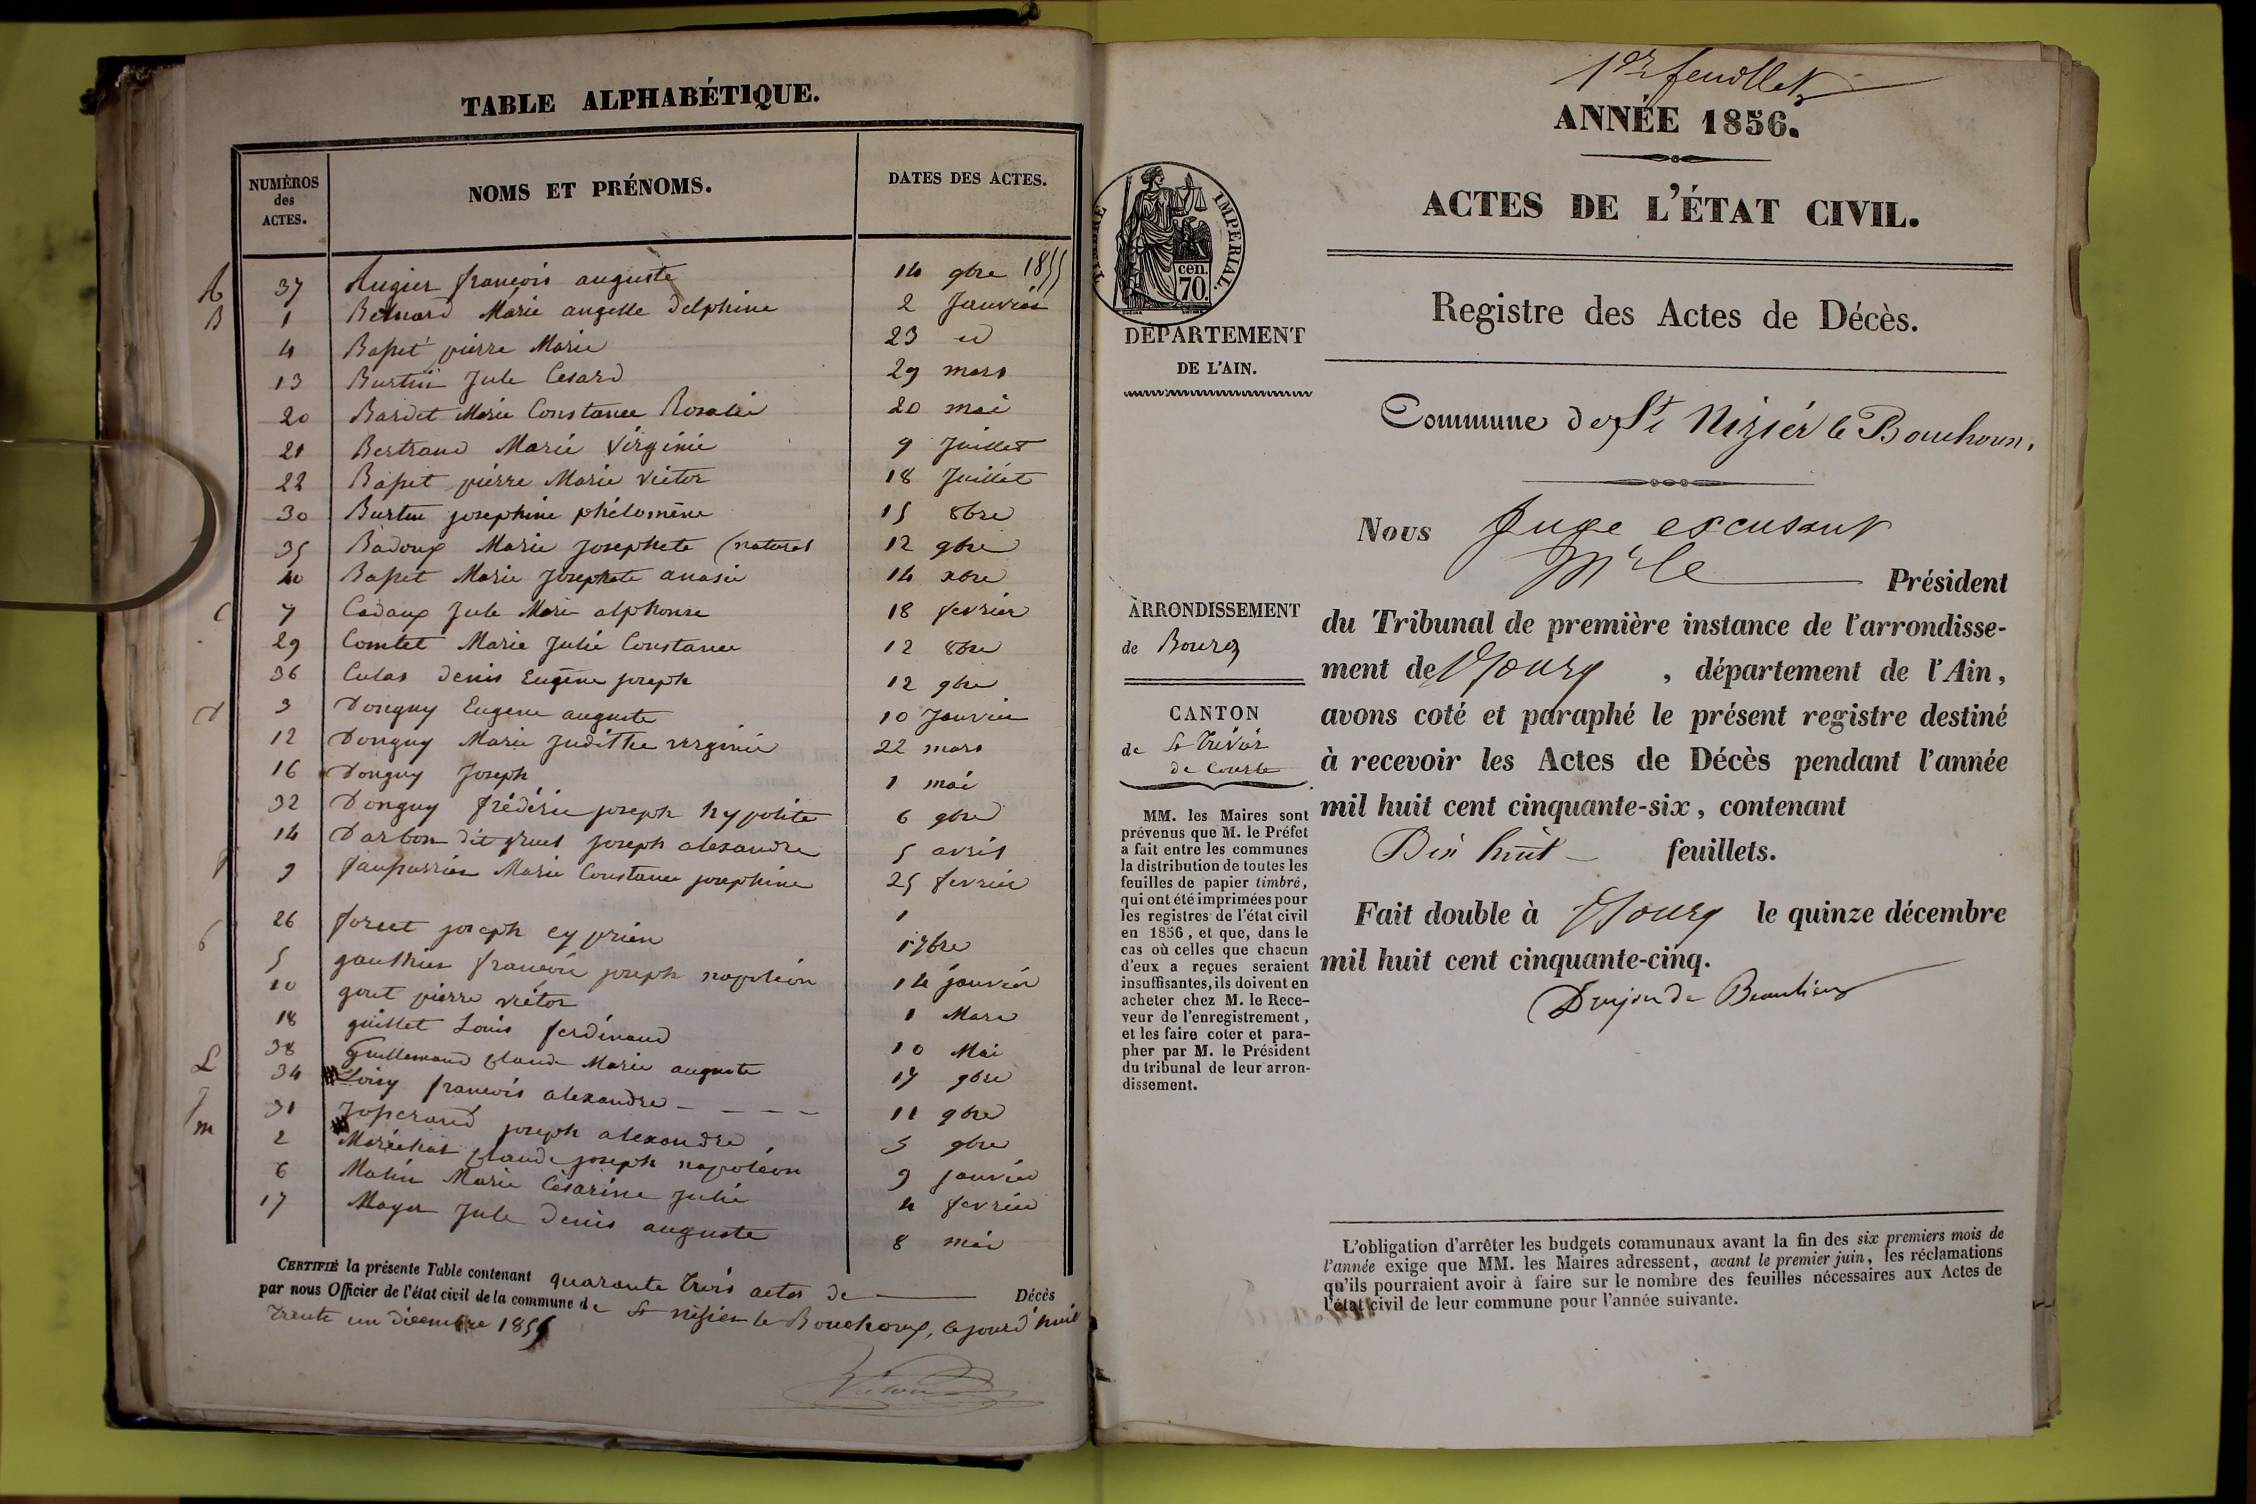 TABLE ALPHABÉTIQUE.
NUMÉROS des ACTES. NOMS ET PRÉNOMS. DATES DES ACTES.
A 37 Augier françois auguste 14 9bre 1855
B 1 Bernard Marie angelle delphine 2 Janvier
4 Bapet pierre Marie 23 id
13 Burtin Jule Cesard 29 mars
20 Bardet Marie Constance Rosalie 20 mai
21 Bertrand Marie Virginie 9 Juillet
22 Bapet pierre Marie Victor 18 Juillet
30 Burtin josephine phélomène 15 8bre
35 Badoux Marie Josephete (naturel 12 9bre
40 Bapet Marie Josephete anasie 14 xbre
C 7 Cadoux Jule Marie alphonse 18 fevrier
29 Comtet Marie Julie Constance 12 8bre
36 Culas denis Eugène joseph 12 9bre
D 3 Donguy Eugene auguste 10 Janvier
12 Donguy Marie Judithe virginie 22 mars
16 Donguy Joseph 1 mai
32 Donguy frédéric joseph hypolite 6 9bre
14 Darbon dit joseph alexandre 5 avril
f 9 Marie Constance josephine 25 fevrier
26 foret joseph cyprien 1 7bre
G 5 gauthier françois joseph napoléon 14 janvier
10 gout pierre victor 1 Mars
18 guillet Louis ferdinand 10 Mai
38 Guillemaud Claude Marie auguste 17 9bre
L 34 Loisy francois alexandre - - - - 11 9bre
J 31 Josserand joseph alexandre 5 9bre
m 2 Maréchal Claude joseph napoléon 9 janvier
6 Mathi Marie Césarine Julie 4 fevrier
17 Moyer Jule denis auguste 8 mai
CERTIFIÉ la présente Table contenant quarante trois actes de Décès
par nous Officier de l'état civil de la commune de St nizier le Bouchoux, cejourd'huit
trente un décembre 1855
1er feuillet
ANNÉE 1856.
ACTES DE L'ÉTAT CIVIL.
Registre des Actes de Décès.
TIMBRE IMPÉRIAL.
cen.
70.
DÉPARTEMENT
DE L'AIN.
Commune de St Nizier le Bouchoux.
Nous Juge excusant
Mr le Président
ARRONDISSEMENT
de Bourg
CANTON
de St Trivier
de Courte
du Tribunal de première instance de l'arrondisse-
ment de Bourg, département de l'Ain,
avons coté et paraphé le présent registre destiné
à recevoir les Actes de Décès pendant l'année
mil huit cent cinquante-six, contenant
Dix huit feuillets.
Fait double à Bourg le quinze décembre
mil huit cent cinquante-cinq.
Dujon de Beaulieu
MM. les Maires sont
prévenus que M. le Préfet
a fait entre les communes
la distribution de toutes les
feuilles de papier timbré,
qui ont été imprimées pour
les registres de l'état civil
en 1856, et que, dans le
cas où celles que chacun
d'eux a reçues seraient
insuffisantes, ils doivent en
acheter chez M. le Rece-
veur de l'enregistrement,
et les faire coter et para-
pher par M. le Président
du tribunal de leur arron-
dissement.
L'obligation d'arrêter les budgets communaux avant la fin des six premiers mois de
l'année exige que MM. les Maires adressent, avant le premier juin, les réclamations
qu'ils pourraient avoir à faire sur le nombre des feuilles nécessaires aux Actes de
l'état civil de leur commune pour l'année suivante.